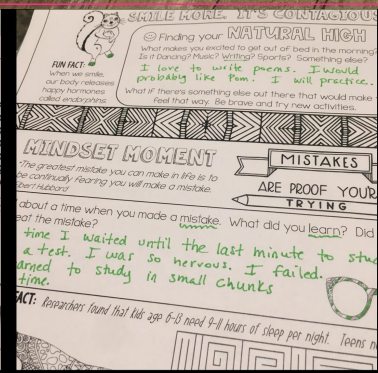 SMILE MORE. IT'S CONTAGIOUS
Finding your NATURAL HIGH
What makes you excited to get out of bed in the morning?
Is it Dancing? Music? Writing? Sports? Something else?
I love to write poems. I would
probably like Pom. I will practice.
What if there's something else out there that would make
feel that way. Be brave and try new activities.
FUN FACT:
When we smile,
our body releases
happy hormones
called endorphins
MINDSET MOMENT
"The greatest mistake you can make in life is to
be continually fearing you will make a mistake.
Elbert Hubbard
MISTAKES
ARE PROOF YOU'R
TRYING
about a time when you made a mistake. What did you learn? Did
eat the mistake?
time I waited until the last minute to stud
a test. I was so nervous. I failed.
arned to study in small chunks
time.
FACT: Researchers found that kids age 6-13 need 9-11 hours of sleep per night. Teens n